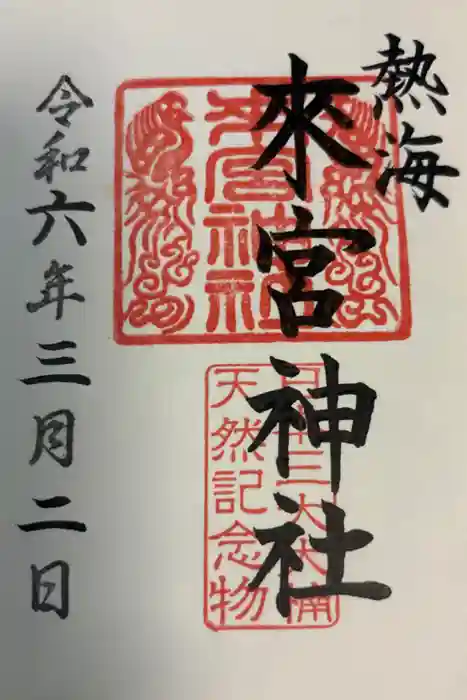 熱海
來宮神社
來宮神社
日本三大大楠
天然記念物
令和六年三月二日